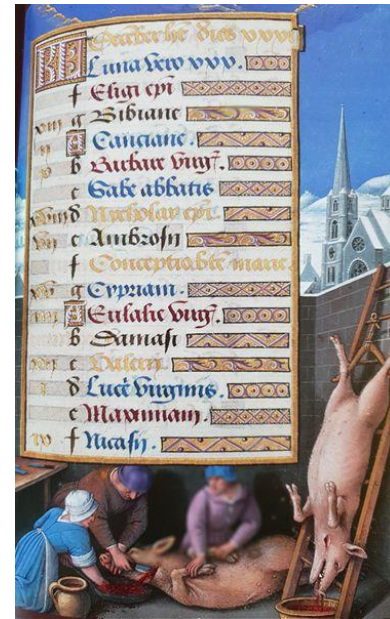 December he dies xxxi
Luna vero xxx.
f Eligi epi
xiii g Bibiane
ii A Canciane.
b Barbare virg.
c Sabe abbatis
d Nicholai epi.
e Ambrosii
f Conceptio bte marie
g Cypriani.
A Eulalie virg.
b Damasi
c Valerii
d Lucie virginis.
e Maximiani.
f Nicasii.